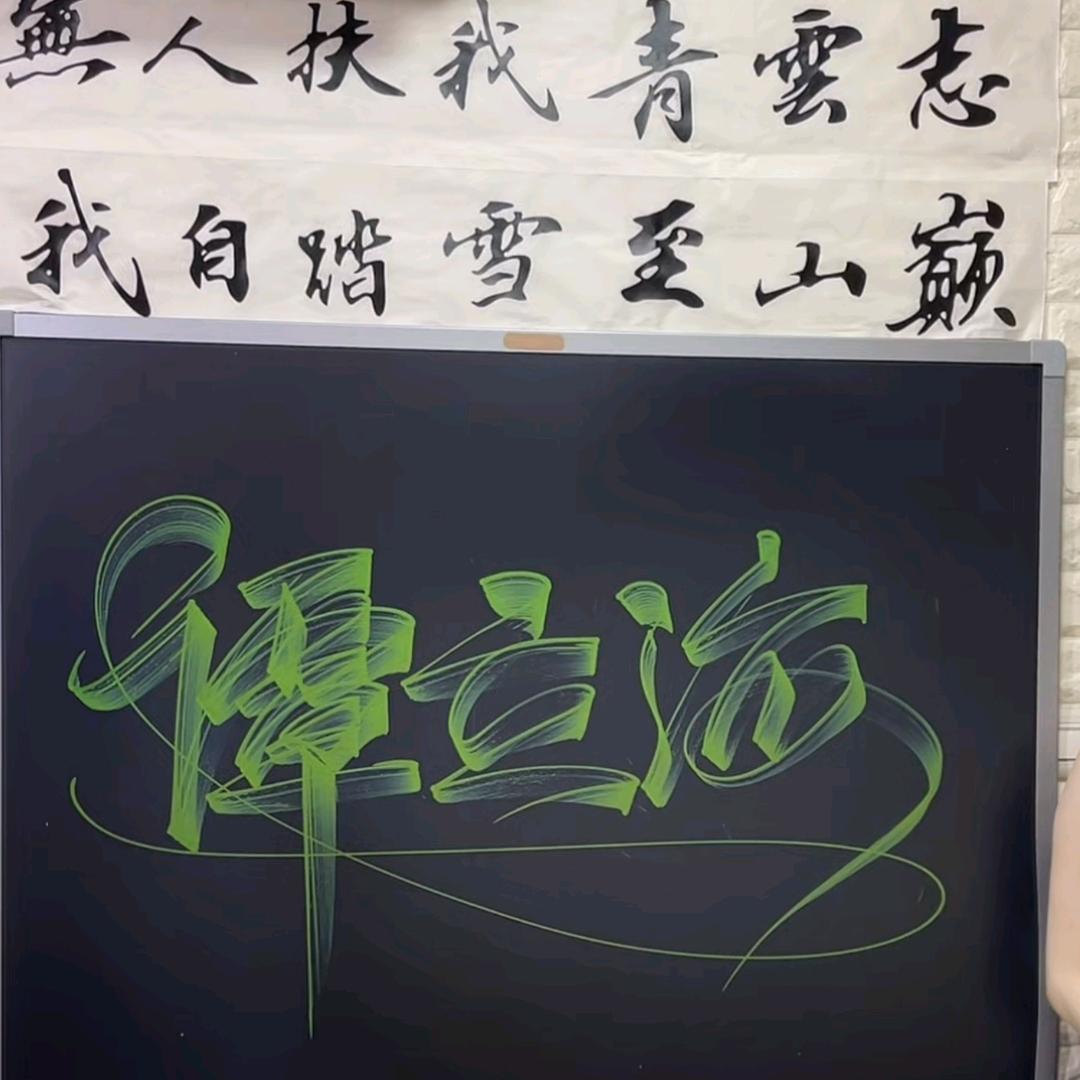 無人扶我青雲志
我自踏雪至山巔
谭立海